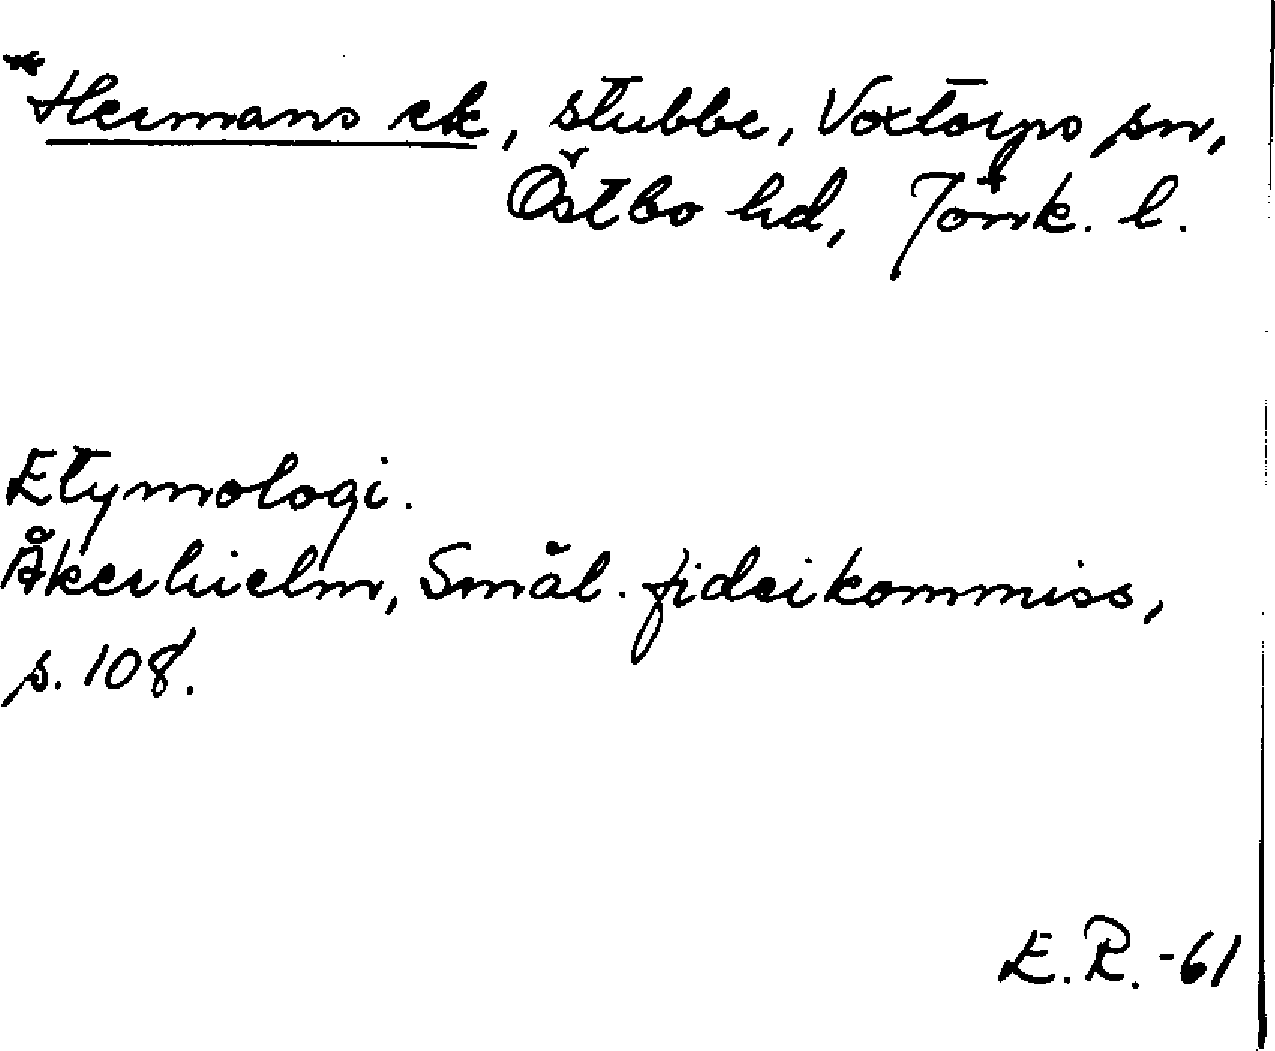 *Hermans ek, stubbe, Voxtorps sn,
Östbo hd, Jönk. l.
Etymologi.
Åkerhielm, Smål. fideikommiss,
s. 108.
E. R. -61